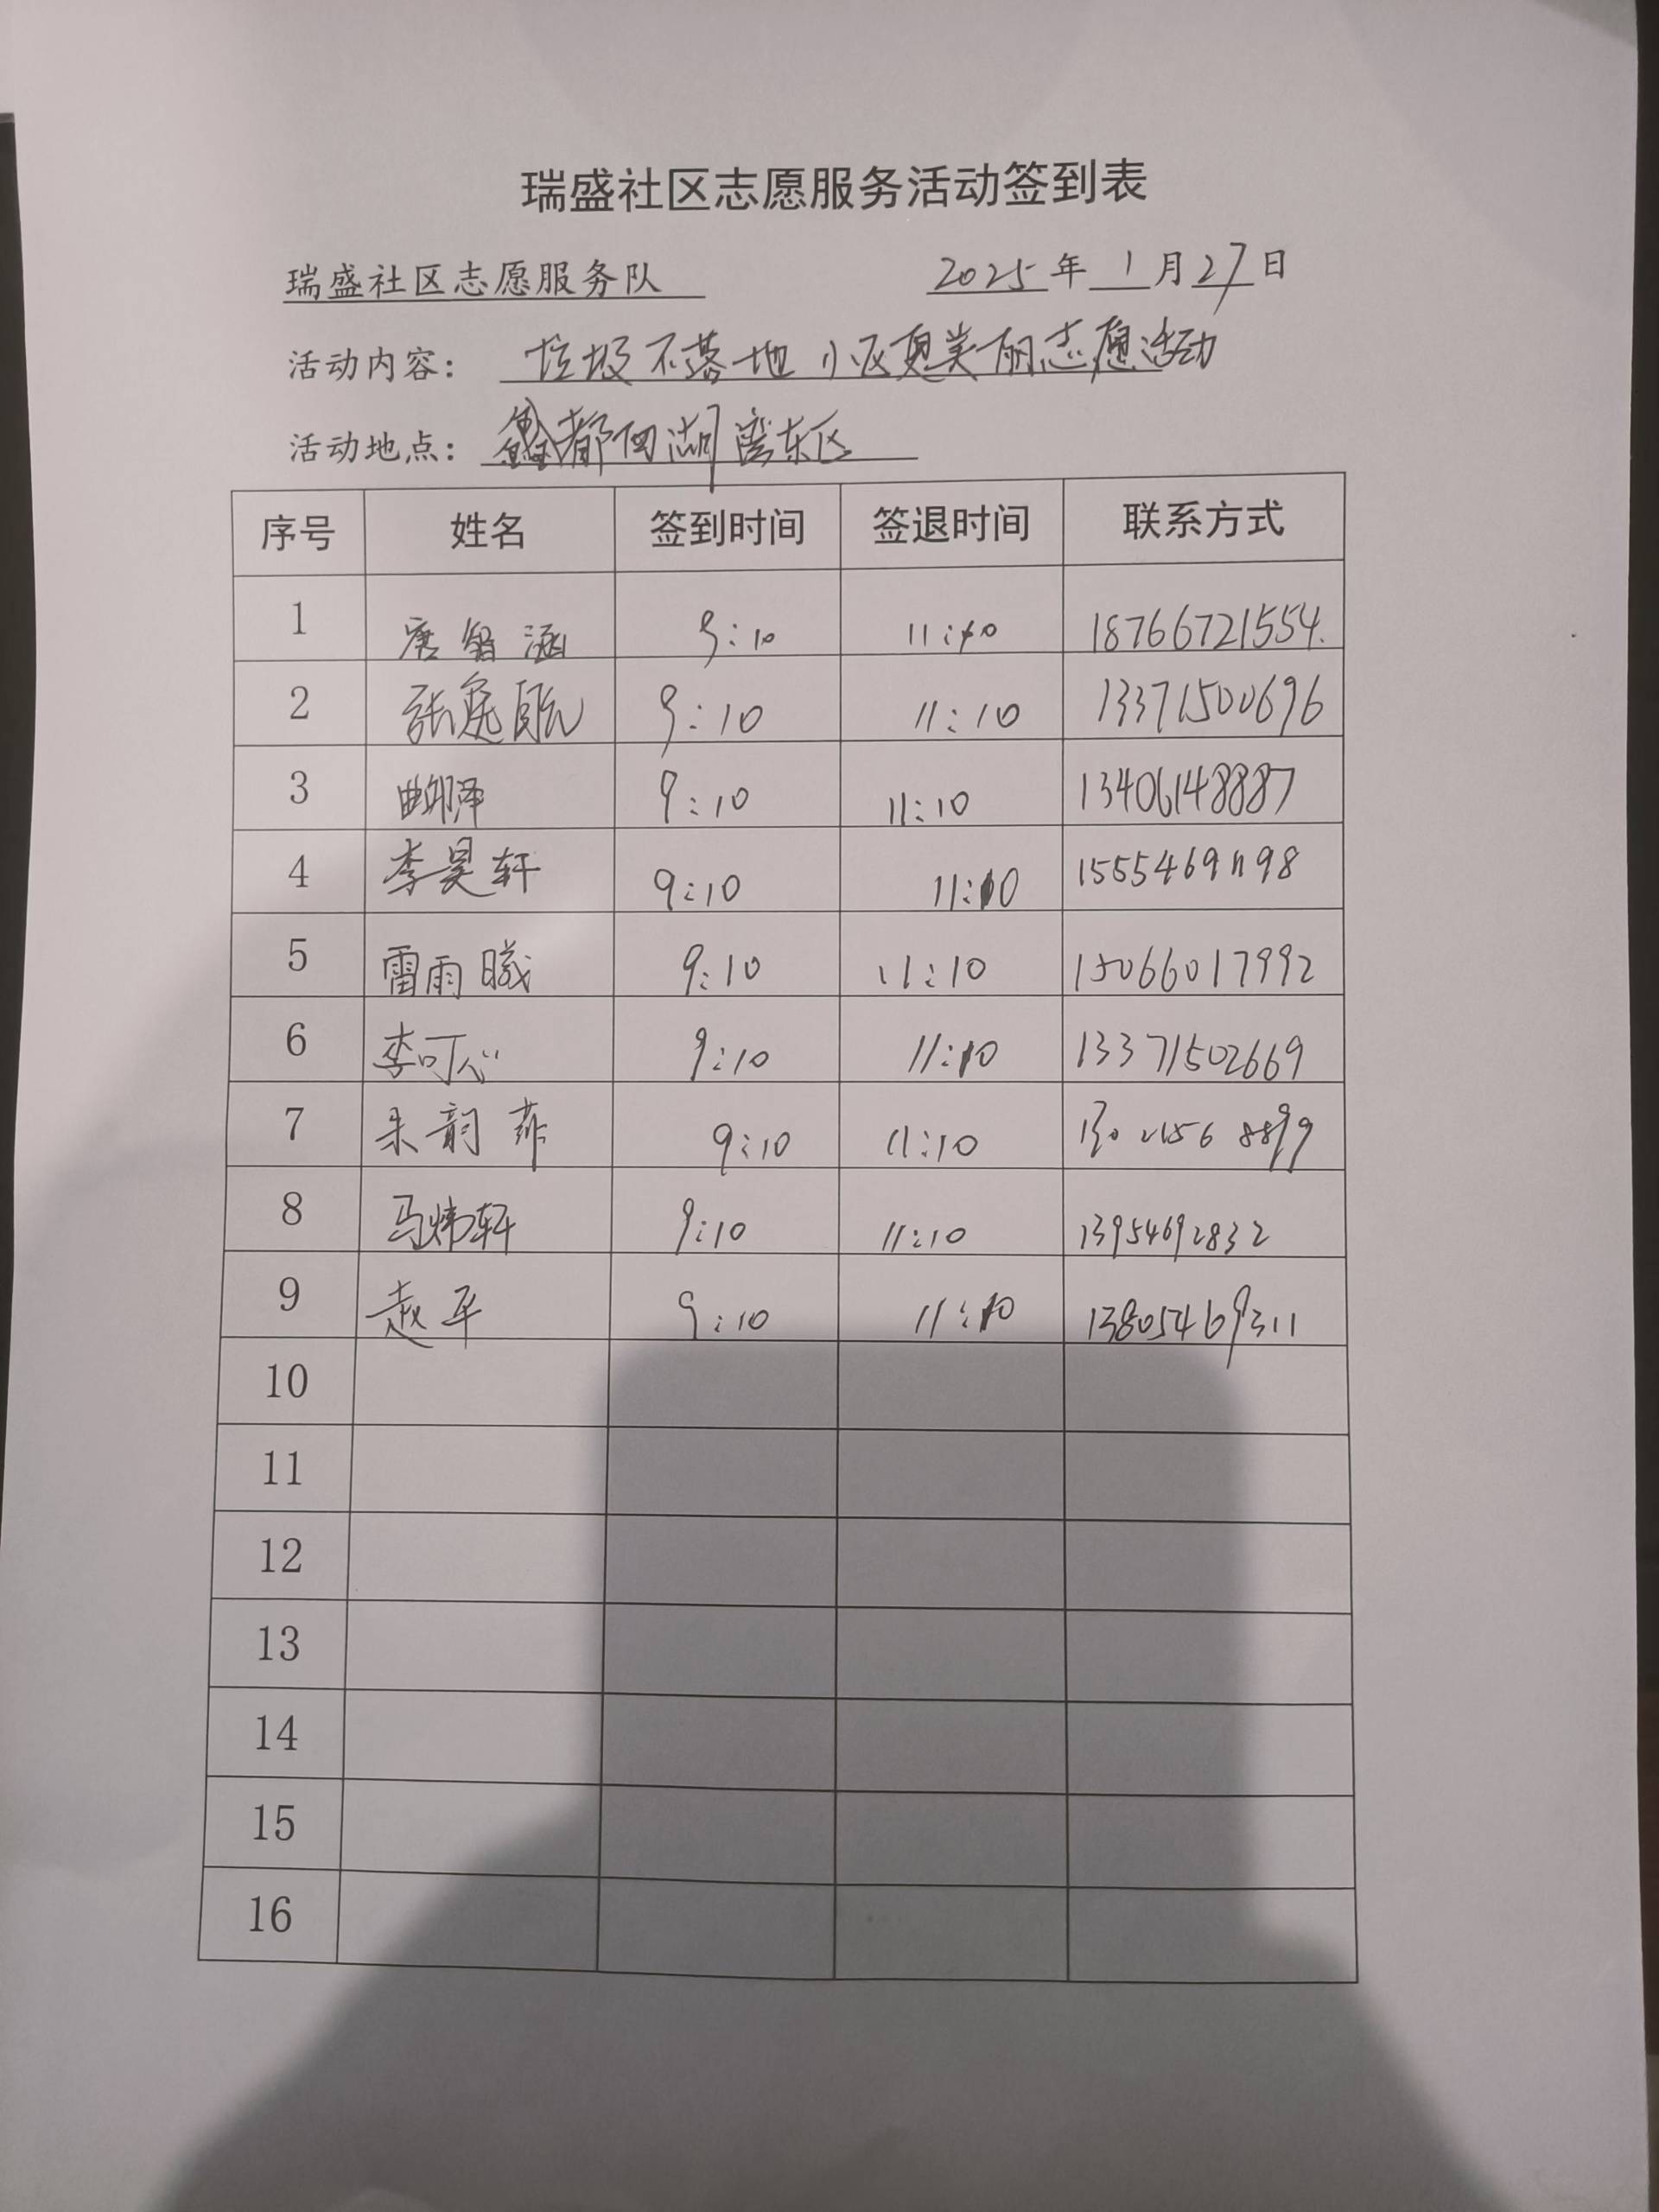 瑞盛社区志愿服务活动签到表
瑞盛社区志愿服务队 2025年1月27日
活动内容： 垃圾不落地 小区更美丽志愿活动
活动地点： 鑫都西湖湾东区
序号 姓名 签到时间 签退时间 联系方式
1 唐智涵 9:10 11:10 18766721554.
2 张 9:10 11:10 13371500696
3 曲 泽 9:10 11:10 13406148887
4 李昊轩 9:10 11:10 15554691198
5 雷雨曦 9:10 11:10 15066017992
6 李可心 9:10 11:10 13371502669
7 朱韵菲 9:10 11:10
8 马炜轩 9:10 11:10 13954692832
9 赵平 9:10 11:10 13805469311
10
11
12
13
14
15
16